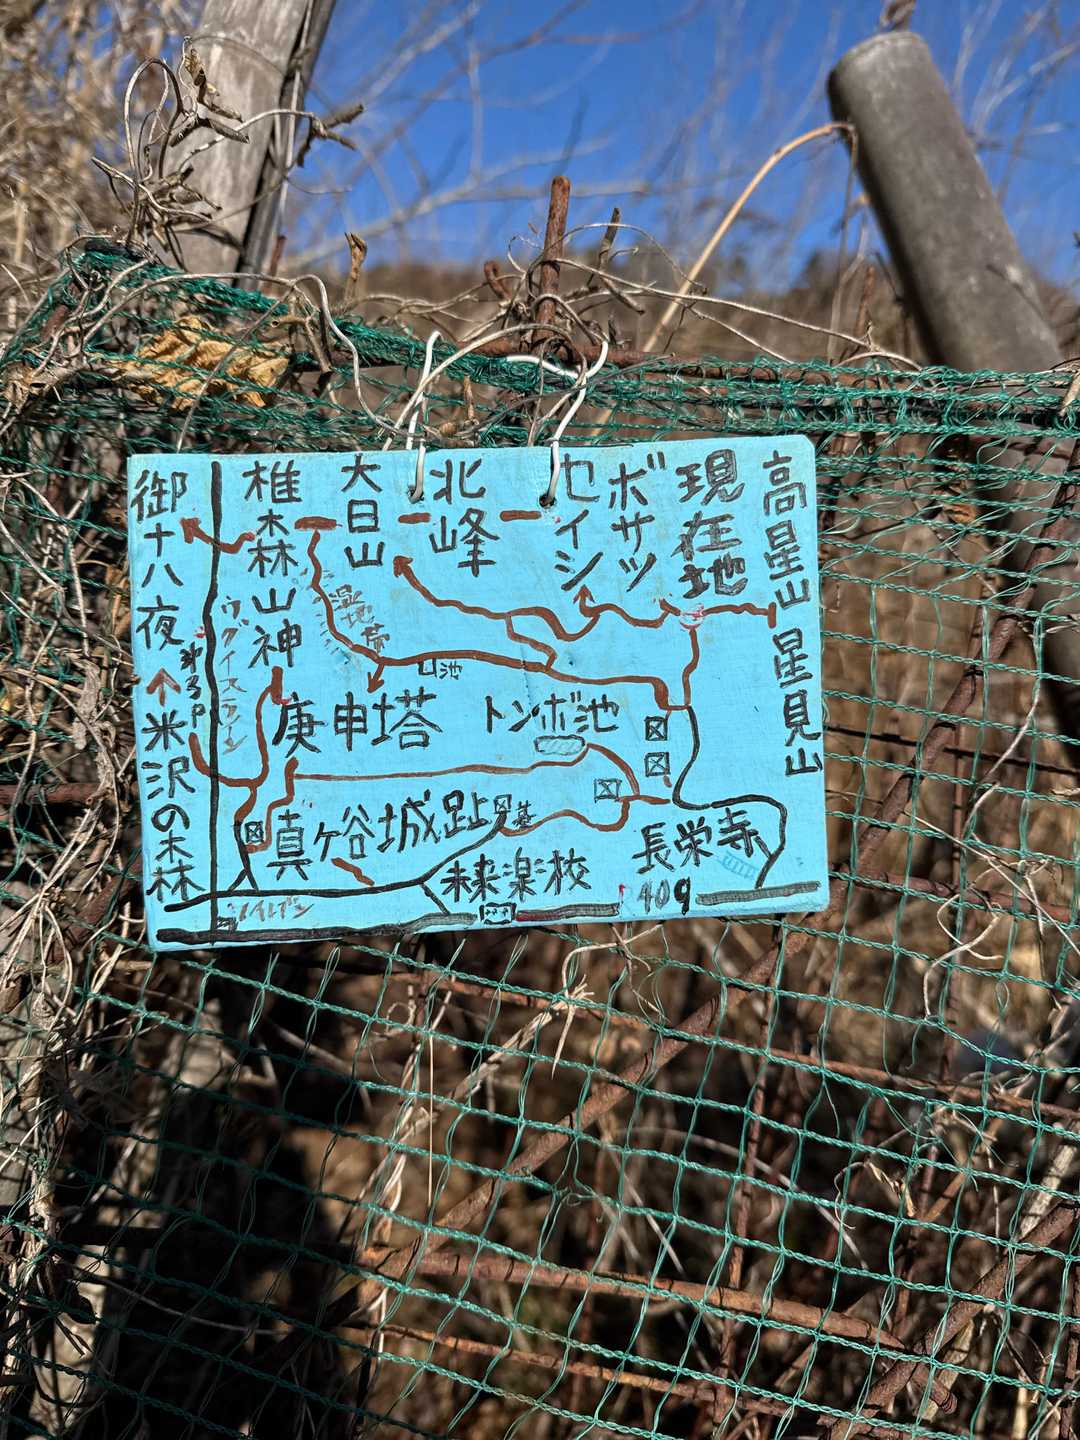 高星山
星見山
現在地
ボサツ
セイシ
北峰
大日山
椎森
山神
御十八夜
米沢の森
ウグイスライン
湿地帯
池
庚申塔
トンボ池
真ヶ谷城趾
墓
未来楽校
長栄寺
409